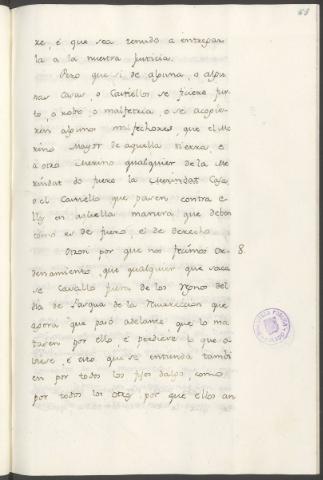 63
re, é que sea tenudo a entregar
la a la nuestra justicia.
Pero que si de alguna, o algu
nas Casas, o Castiellos se ficiere fur
to, o robo, o malfetria, o se acogie-
ren algunos malfechores, que el Me
rino mayor de aquella tierra, e
á otro Merino qualquier de la Me
rindat do fuere la Merindat Casa,
o el Castiello que pasen contra e-
llos en aquella manera que deben
como es de fuero, é de derecho.
Otrosi por que nos ficimos or- 8.
denamiento, que qualquier que saca
se Cavallo fuera de los Regnos del
dia de Pasqua de la Resureccion que
agora que pasó adelante, que lo ma
tasen por ello, é perdiese lo que o-
biese, é esto que se entienda tambi
en por todos los fijos dalgo, como
por todos los otros, por que ellos an